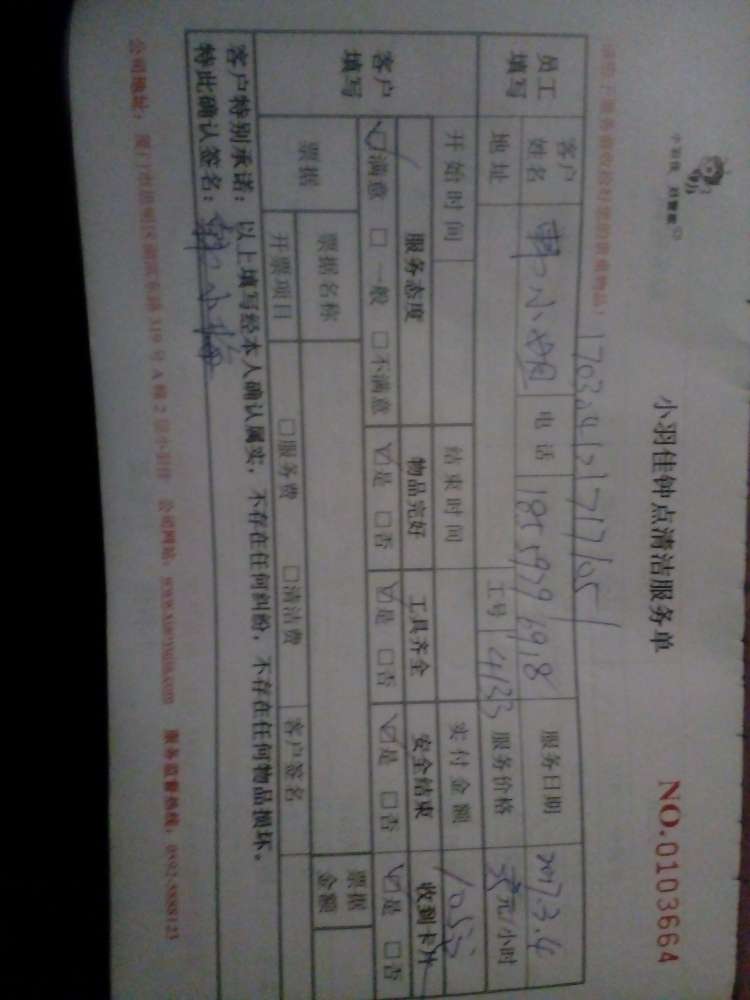 小羽佳 刘管家
小羽佳钟点清洁服务单
NO.0103664
员工填写
客户姓名 韩小姐 电话 服务日期 2017.3.4
地址 工号 4133 服务价格 元/小时
开始时间 结束时间 实付金额 105元
客户填写
服务态度 物品完好 工具齐全 安全结束 收到卡片
☑满意 □一般 □不满意 ☑是 □否 ☑是 □否 ☑是 □否 ☑是 □否
票据 票据名称 票据金额
开票项目 □服务费 □清洁费 客户签名
客户特别承诺：以上填写经本人确认属实，不存在任何纠纷，不存在任何物品损坏。
特此确认签名：韩小姐
公司地址： 319号A幢2层小羽佳 公司网站： 服务监督热线：0592-5888123